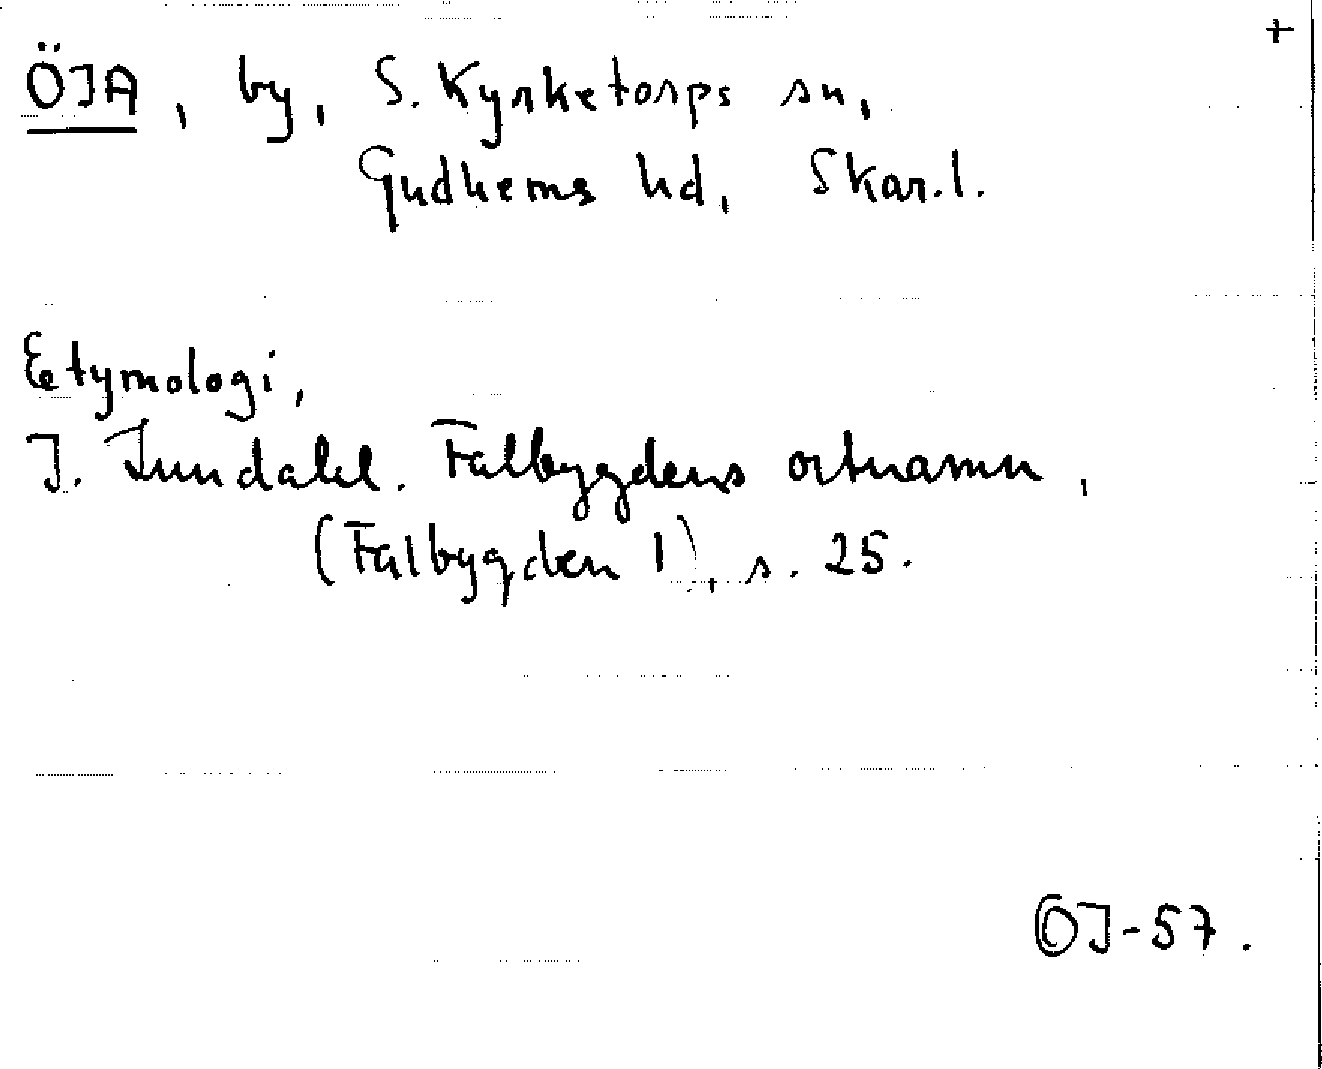 +
ÖJA, by, S. Kyrketorps sn,
Gudhems hd, Skar.l.
Etymologi,
J. Sundahl. Falbygdens ortnamn,
(Falbygden 1), s. 25.
OJ-57.